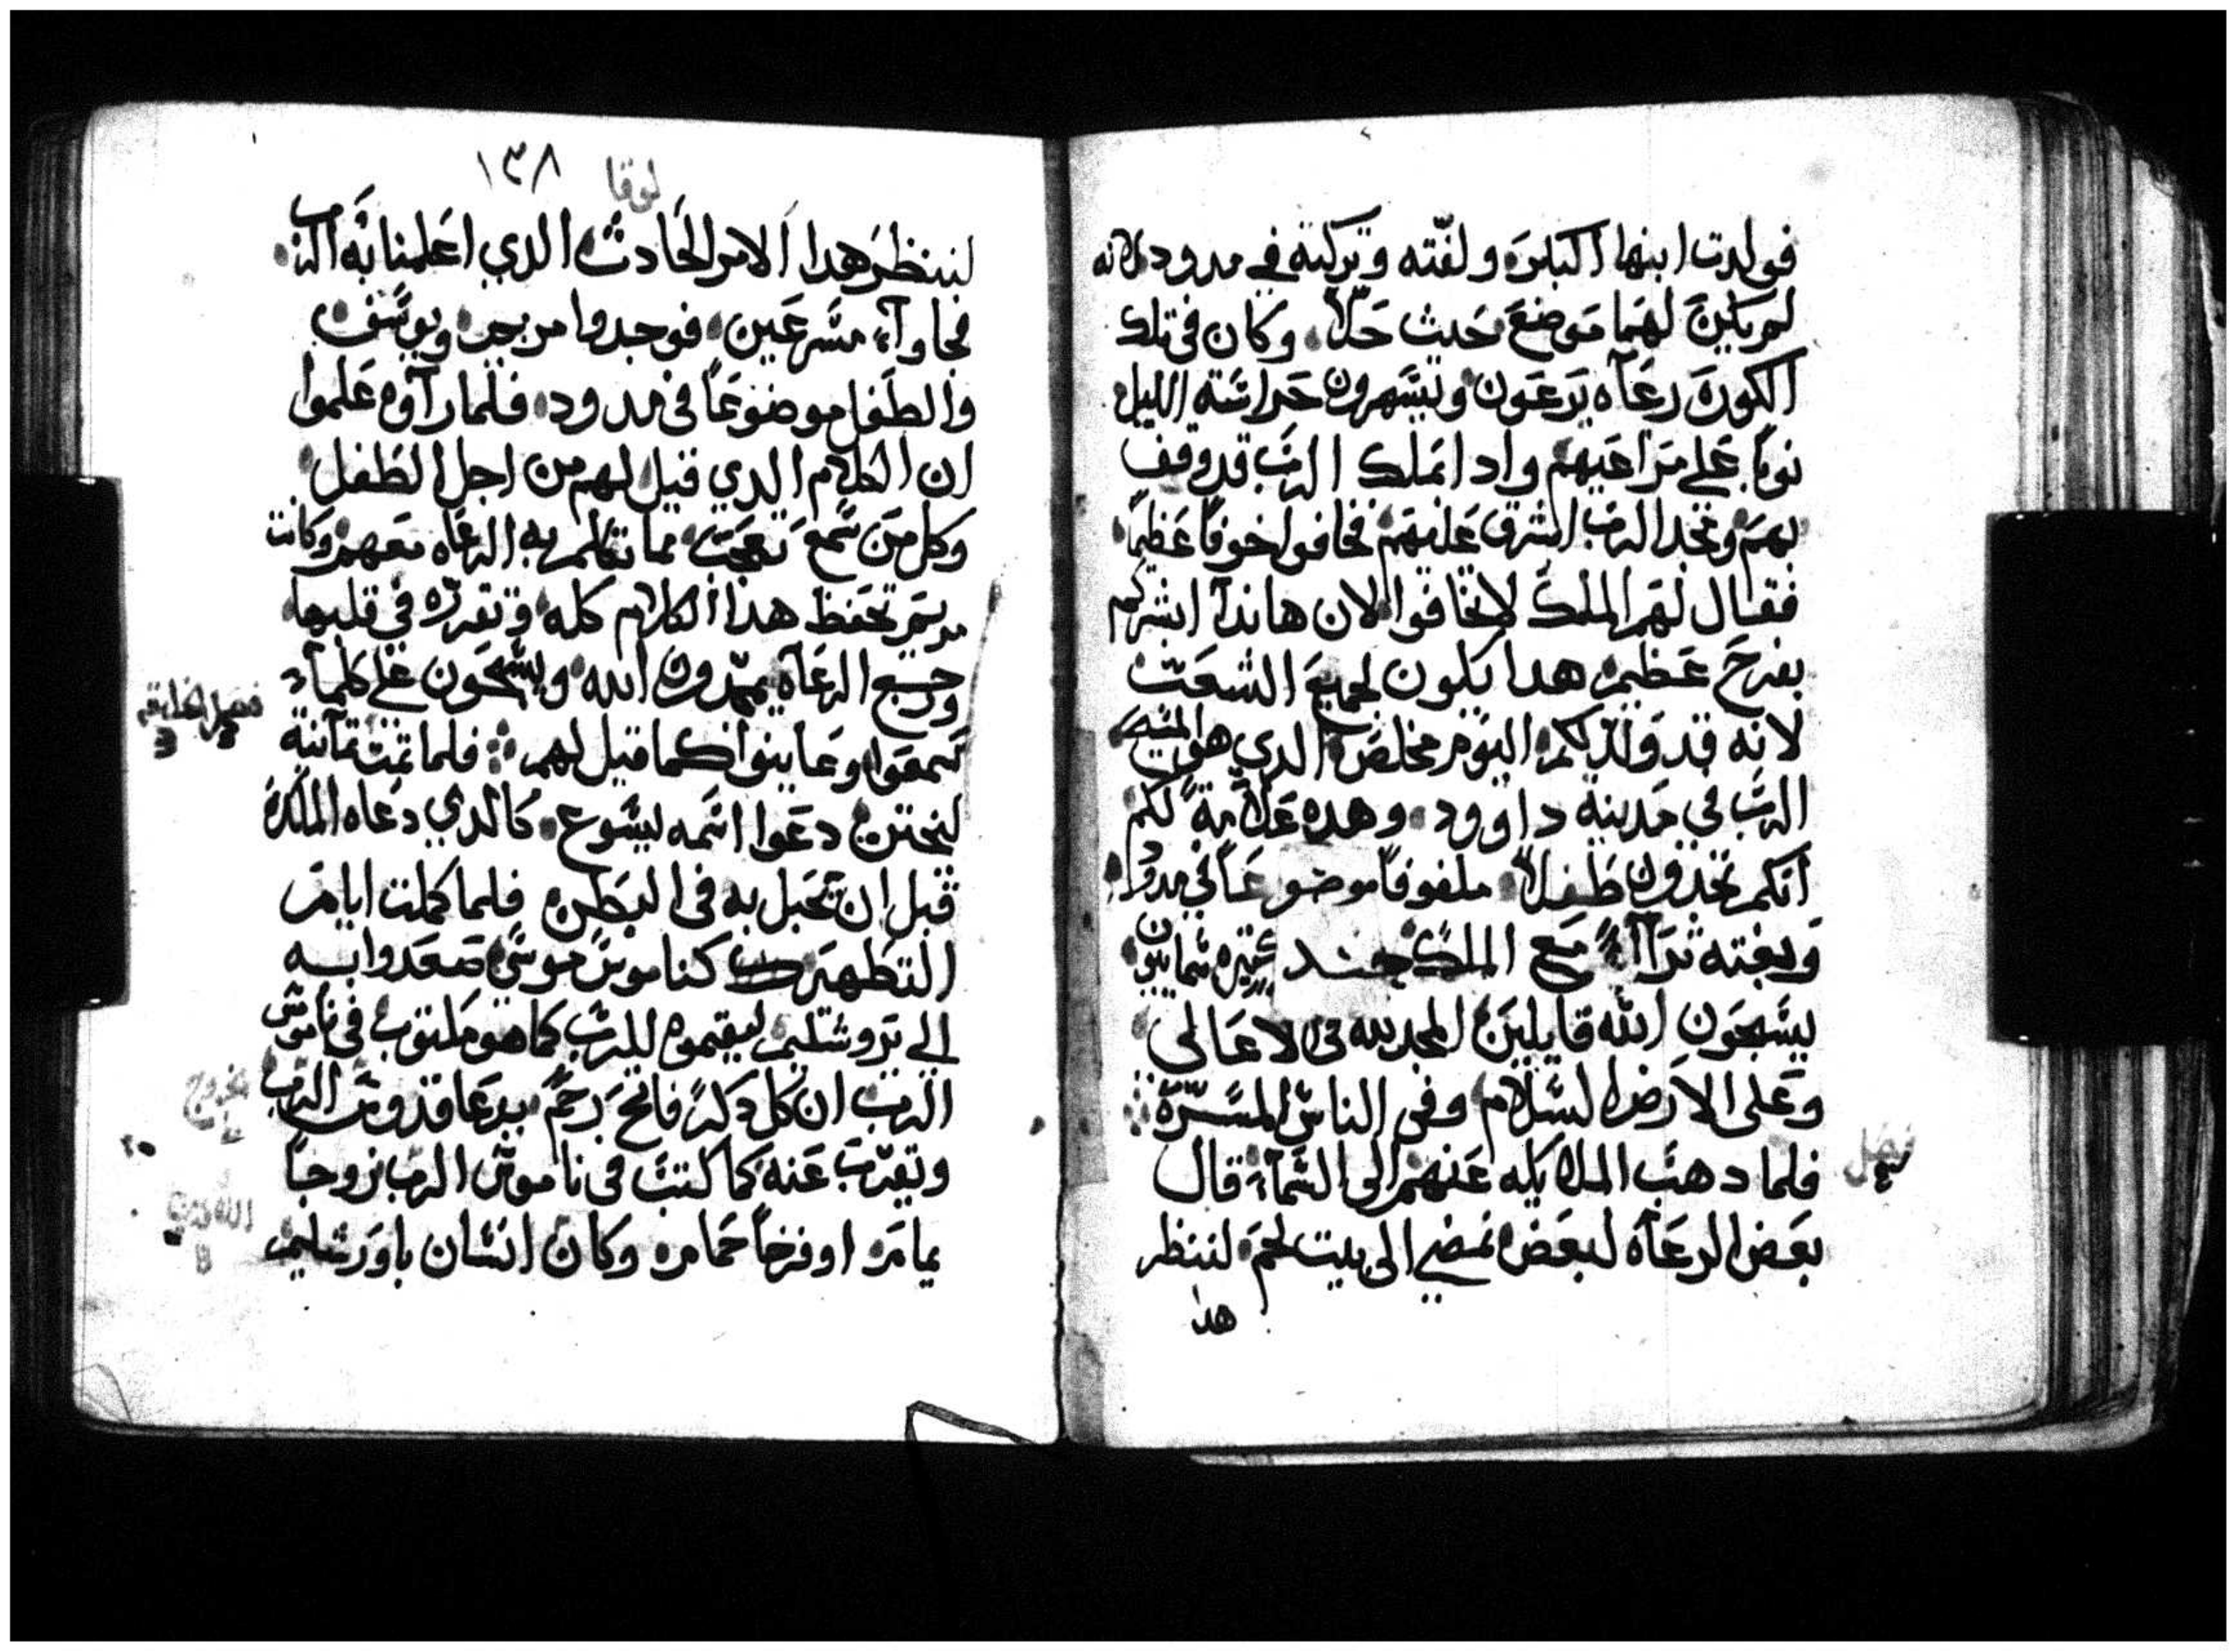 فولدت ابنها البكر ولفته وتركته في مدود لانه
لم يكن لهما موضع حيث حلا وكان في تلك
الكوره رعاه يرعون ويسهرون حراسة الليل
نوبا على مراعيهم واذا ملاك الرب قد وقف
بهم ومجد الرب اشرق عليهم فخافوا خوفا عظيما
فقال لهم الملاك لا تخافوا لان هاندا ابشركم
بفرح عظيم هدا يكون لجميع الشعب
لانه قد ولد لكم اليوم مخلص الدي هو المسيح
الرب في مدينة داوود وهده علامة لكم
انكم تجدون طفلا ملفوفا موضوعا في مدود
وبغته ترآا مع الملاك جند كثيره سماييون
يسبحون الله قايلين المجد لله في الاعالي
وعلى الارض السلام وفي الناس المسرة
فلما دهب الملايكه عنهم الى السماء قال
بعض الرعاه لبعض نمضي الى بيت لحم لننظر
هدا
فصل
لوقا
١٣٨
لننظر هدا الامر الحادث الدي اعلمنا به الرب
فجاوآ مسرعين فوجدوا مريم ويوسف
والطفل موضوعا في مدود فلما رآوه علموا
ان الكلام الدي قيل لهم من اجل الطفل
وكل من سمع تعجب مما تكلم به الرعاه معهم وكانت
مريم تحفظ هدا الكلام كله وتقرره في قلبها
ورجع الرعاه يمجدون الله ويسبحون على كلماء
سمعوا وعاينوا كما قيل لهم فلما تمت تمانية
ليختن دعوا اسمه يسوع كالدي دعاه الملاك
قبل ان تحبل به في البطن فلما كملت ايام
التطهير كناموس موسى صعدوا به
الى يروشليم ليقيموه للرب كما هو مكتوب في ناموس
الرب ان كل دكر فاتح رحم يدعا قدوس الرب
وتقرب عنه كما كتب في ناموس الرب زوجا
يمام او فرخا حمام وكان انسان باورشليم
خروج